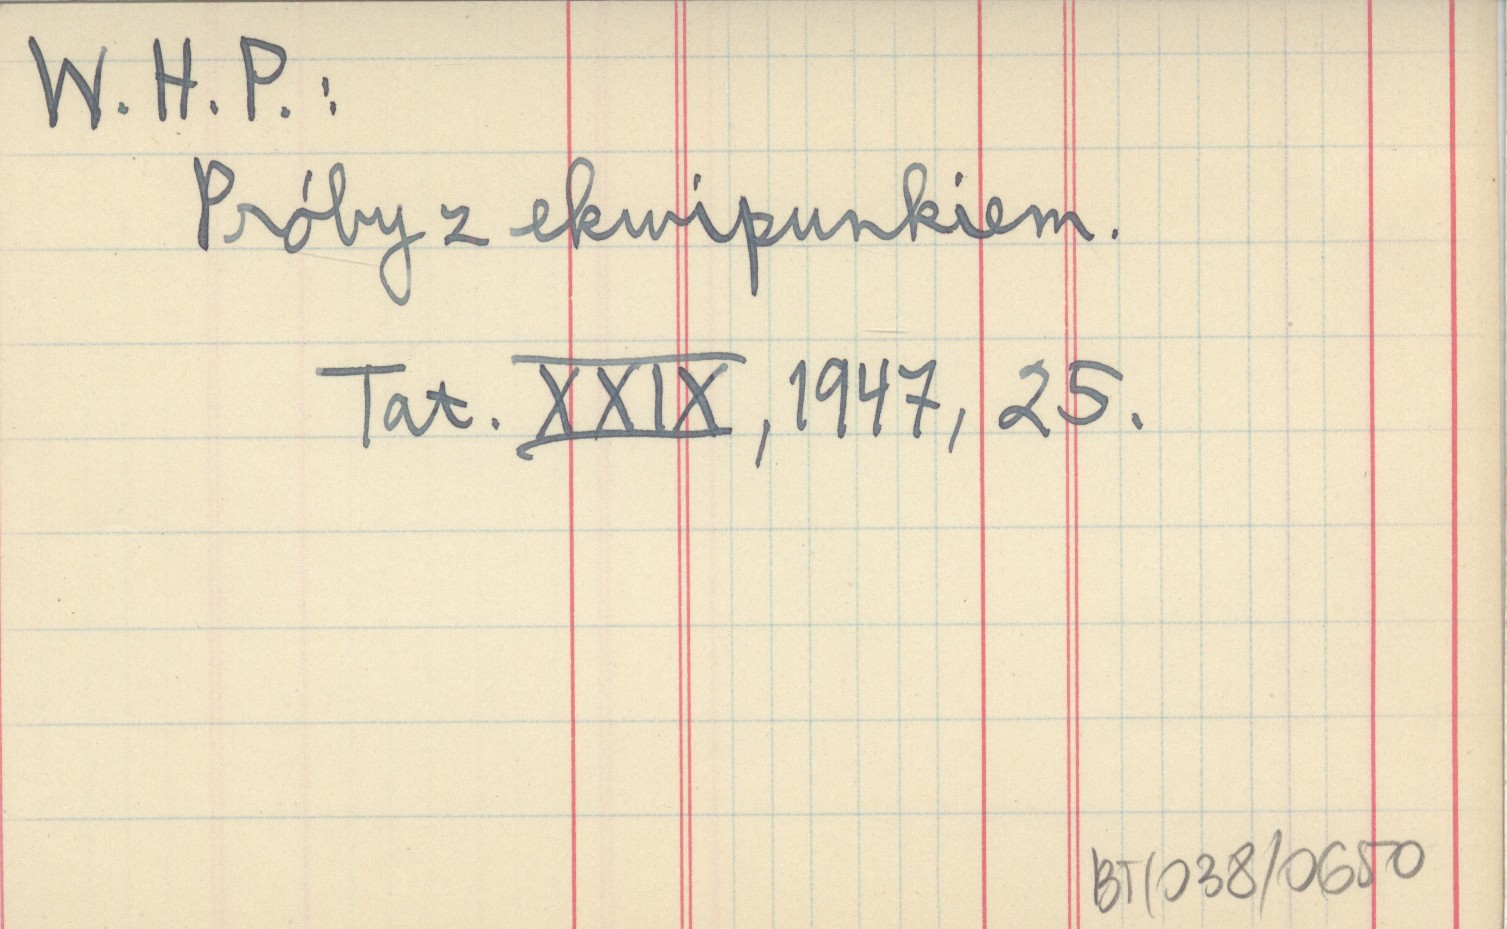 W. H. P.:
Próby z ekwipunkiem.
Tat. XXIX, 1947, 25.
BT(038/0650